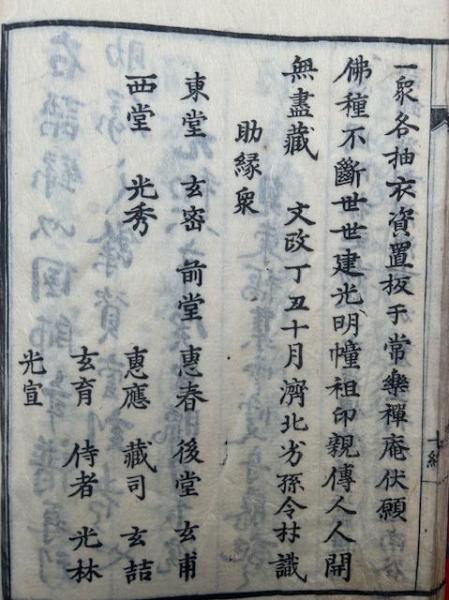 一衆各抽衣資置板于常樂禪庵伏願
佛種不斷世世建光明幢祖印親傳人人開
無盡藏 文政丁丑十月濟北劣孫令材識
助縁衆
東堂 玄密 前堂 惠春 後堂 玄甫
西堂 光秀 惠應 藏司 玄詰
玄育 侍者 光林
光宣